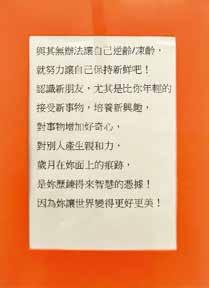 與其無辦法讓自己逆齡/凍齡，
就努力讓自己保持新鮮吧！
認識新朋友，尤其是比你年輕的
接受新事物，培養新興趣，
對事物增加好奇心，
對別人產生親和力，
歲月在妳面上的痕跡，
是妳歷鍊得來智慧的憑據！
因為妳讓世界變得更好更美！